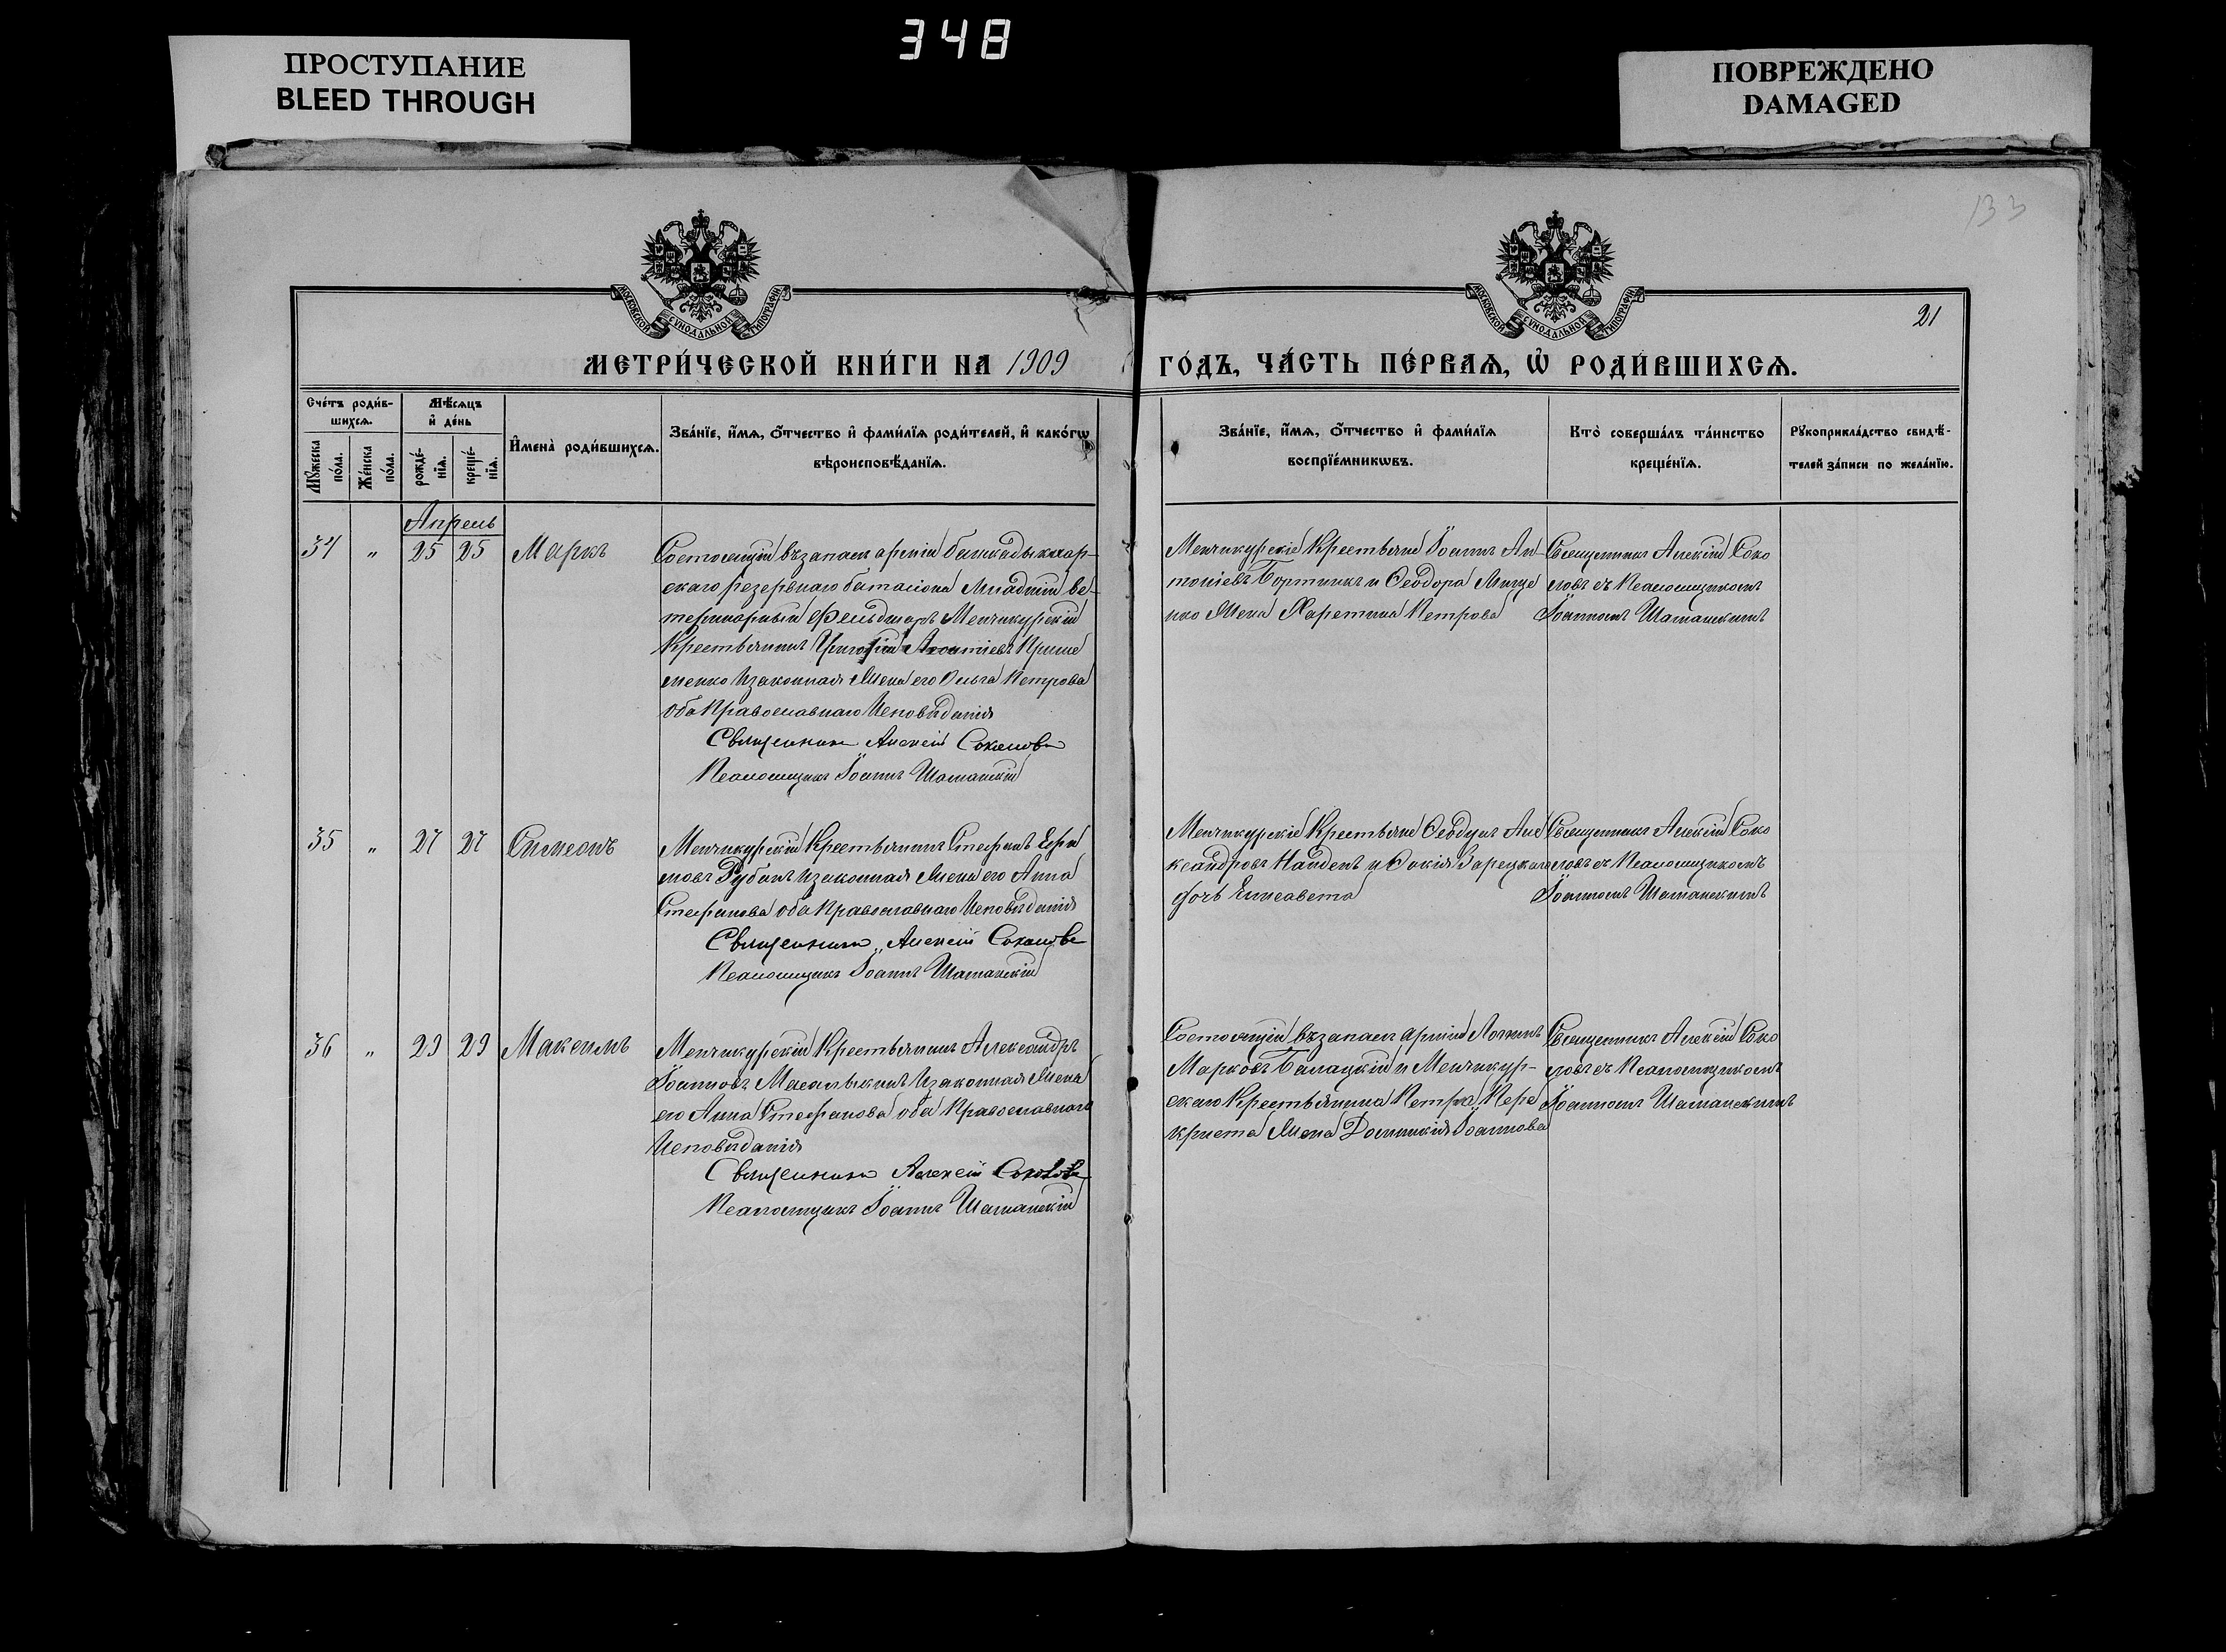 348
ПРОСТУПАНИЕ
BLEED THROUGH
ПОВРЕЖДЕНО
DAMAGED
133
МОСКОВСКОЙ СѴНОДАЛЬНОЙ ТИПОГРАФІИ
МОСКОВСКОЙ СѴНОДАЛЬНОЙ ТИПОГРАФІИ
21
МЕТРИ́ЧЕСКОЙ КНИ́ГИ НА 1909
ГО́ДЪ, ЧА́СТЬ ПЕ́РВАѦ, Ѡ҆ РОДИ́ВШИХСѦ.
Сче́тъ роди́в-
шихсѧ.
Мѣ́сѧцъ
и҆ де́нь
Мꙋ́жеска
по́ла.
Же́нска
по́ла.
рожде́-
нїѧ.
креще́-
нїѧ.
И҆мена̀ роди́вшихсѧ.
Зва́нїе, и҆́мѧ, ѻ҆́тчество и҆ фами́лїѧ роди́телей, и҆ како́гѡ
вѣроисповѣ́данїѧ.
Зва́нїе, и҆́мѧ, ѻ҆́тчество и҆ фами́лїѧ
воспрїе́мникѡвъ.
Кто̀ соверша́лъ та́инство
креще́нїѧ.
Рꙋкоприкла́дство свидѣ́-
телей за́писи по жела́нїю.
Апрель
34 " 25 25 Маркъ
Состоящій въ запасѣ арміи
скаго резервнаго баталіона Младшій ве-
теринарный Фельдшеръ Менчикурскій
Крестьянинъ Криме
ненко и законная жена его Ольга Петрова
оба Православнаго Исповѣданія
Священникъ Алексій Соколовъ
Псаломщикъ Іоаннъ Шаманскій
Менчикурскіе Крестьяне Іоаннъ Ан-
тоніевъ Бортникъ и Ѳеодора Мище
нко жена Харетина Петрова
Священникъ Алексій Соко
ловъ съ Псаломщикомъ
Іоанномъ Шаманскимъ
35 " 27 27 Симеонъ
Менчикурскій Крестьянинъ Стефанъ Ефи
мовъ Рубанъ и законная жена его Анна
Стефанова оба Православнаго Исповѣданія
Священникъ Алексій Соколовъ
Псаломщикъ Іоаннъ Шаманскій
Менчикурскіе Крестьяне Але
ксандровъ Найденъ и Зарецкаго
дочь Елисавета
Священникъ Алексій Соко
ловъ съ Псаломщикомъ
Іоанномъ Шаманскимъ
36 " 29 29 Максимъ
Менчикурскій Крестьянинъ Александръ
Іоанновъ Масалыкинъ и законная жена
его Анна Стефанова оба Православнаго
Исповѣданія
Священникъ Алексій Соколовъ
Псаломщикъ Іоаннъ Шаманскій
Состоящій въ запасѣ арміи Логинъ
Марковъ Балацкій и Менчикур-
скаго Крестьянина Петра Пере
христа жена Домникія Іоаннова
Священникъ Алексій Соко
ловъ съ Псаломщикомъ
Іоанномъ Шаманскимъ